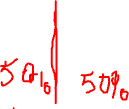 50% 50%